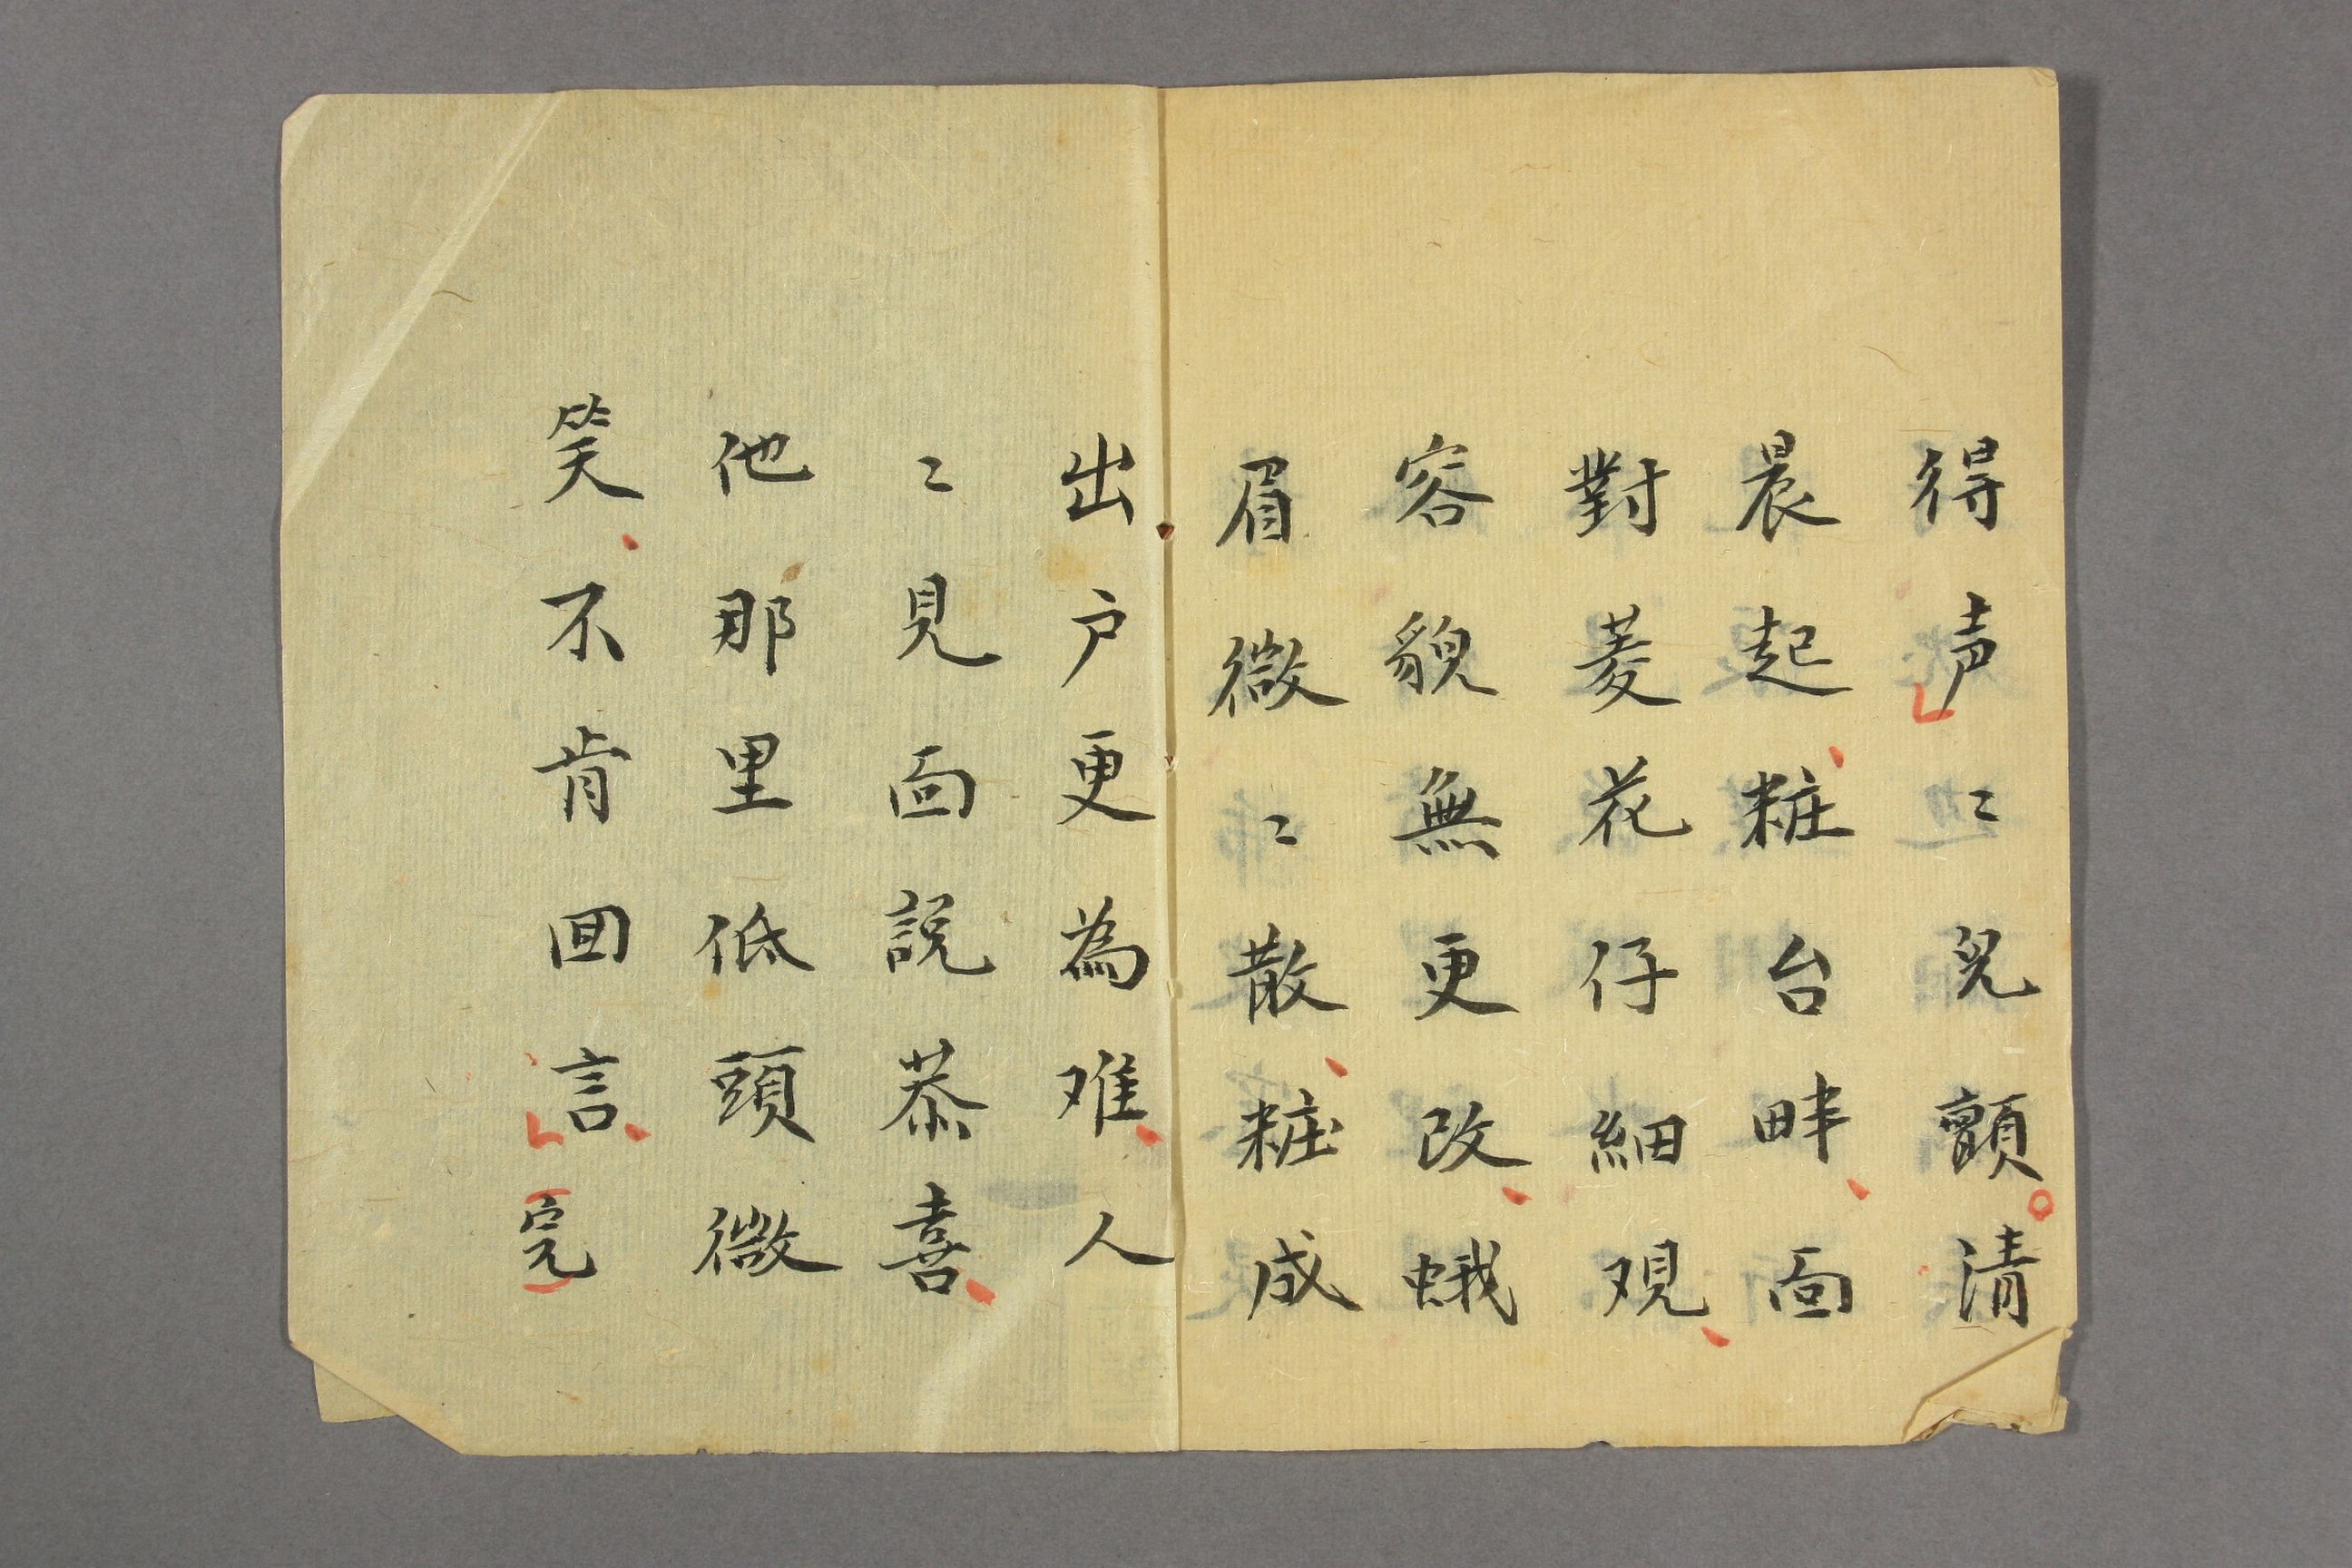 得声〻兒顫清
晨起粧台畔面
對菱花仔細观
容貌無更改蛾
眉微〻散粧成
出户更為难人
〻見面説恭喜
他那里低頭微
笑不肯囬言完